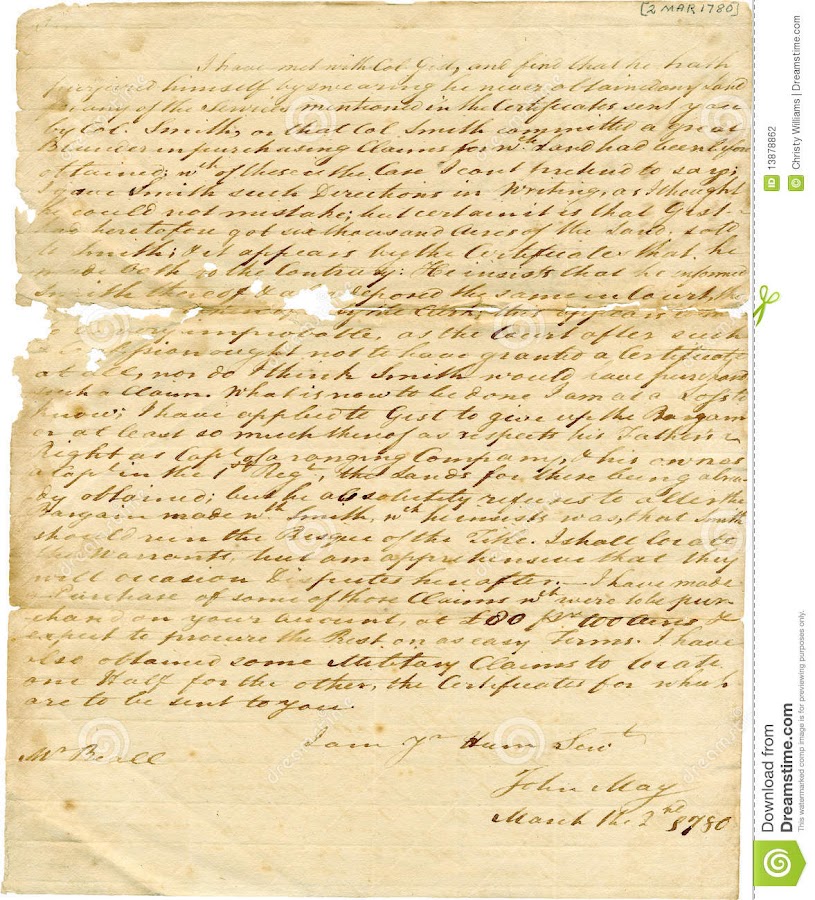 [2 MAR 1780]
I have met with Col. Gist, and find that he hath
himself by swearing he never obtained any Land
any of the Services mentioned in the Certificates sent you
by Col. Smith, or that Col. Smith committed a great
Blunder in purchasing Claims for wh. Land had been
obtained; wh. of these is the Case I cant pretend to say;
I gave Smith such Directions in Writing, as I thought
he could not mistake; but certain it is that Gist
had heretofore got six thousand Acres of the Land, sold
to Smith; & it appears by the Certificates that he
made Oath to the Contrary: He insists that he informed
Smith thereof & deposed the same in Court, the
by the Clerk, this appears to me
improbable, as the Court after such
ought not to have granted a Certificate
at all, nor do I think Smith would have purchased
such a Claim. What is now to be done I am at a Loss to
know; I have applied to Gist to give up the Bargain
or at least so much thereof as respects his Father's
Right as Capt. of a ranging Company, & his own as
a Capt. in the 1st Regt, the Lands for these being alrea-
dy obtained; but he absolutely refuses to alter the
Bargain made wth. Smith, wh. he insists was, that Smith
should run the Risque of the Title. I shall locate
the Warrants, but am apprehensive that they
will occasion Disputes hereafter; — I have made
a Purchase of some of those Claims wh. were to be pur-
chased on your account, at £80 per 100 acres &
expect to procure the Rest on as easy Terms. I have
also obtained some Military Claims to locate
one Half for the other, the Certificates for which
are to be sent to you.
I am Yr Hum Servt
Mr Beall
John May
March the 2nd 1780
13878862
Christy Williams | Dreamstime.com
Download from
Dreamstime.com
This watermarked comp image is for previewing purposes only.